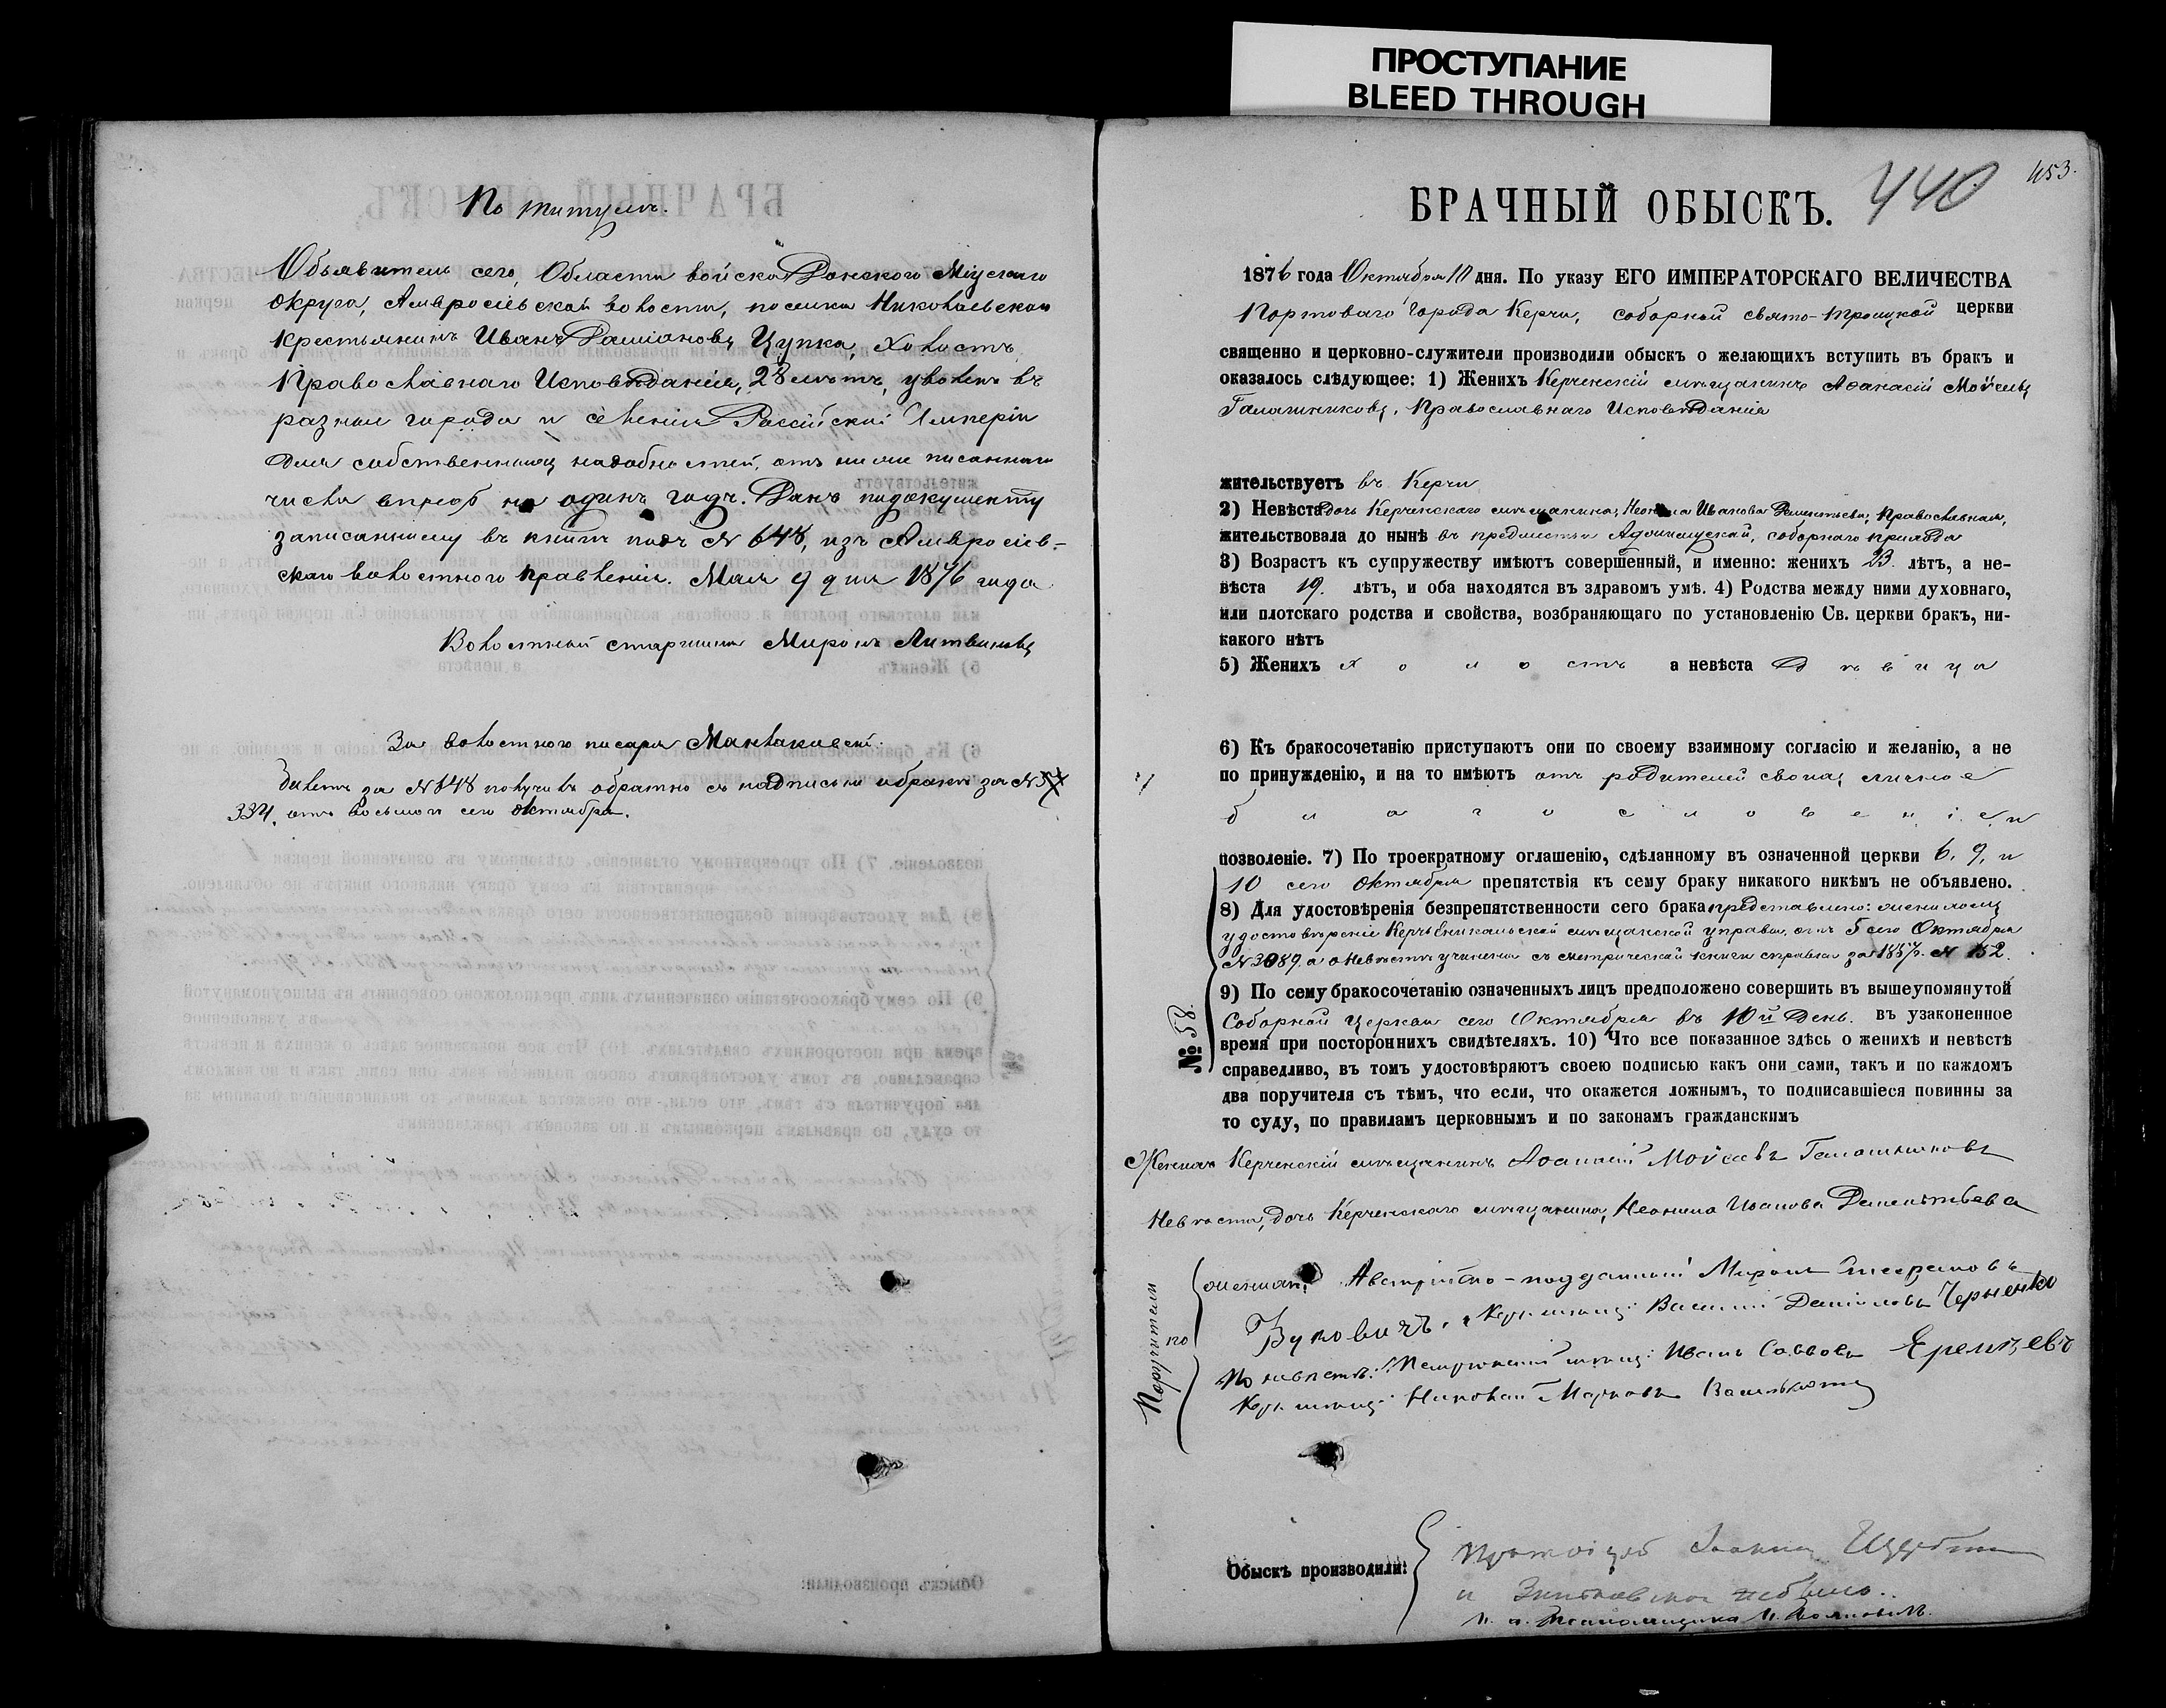 ПРОСТУПАНИЕ
BLEED THROUGH
По титулѣ.
Объявитель сего, Области войска Донского Міускаго
округа, Амвросіевской волости, поселка Николаевскаго
крестьянинъ Иванъ Даміановъ Цупка, холостъ
Православнаго Исповѣданія, 28 лѣтъ, уволенъ въ
разные города и селенія Россійской Имперіи
для собственныхъ надобностей, отъ ниже писаннаго
числа впредь на одинъ годъ. Данъ по документу
записанному въ книгѣ подъ № 648, изъ Амвросіев-
скаго волостного правленія. Мая 9 дня 1876 года
Волостной старшина Миронъ Литвиновъ
За волостного писаря
Билетъ за № 648 получилъ обратно съ надписью о бракѣ за №
334. отъ восьмого сего октября.
440
453.
БРАЧНЫЙ ОБЫСКЪ.
1876 года Октября 10 дня. По указу ЕГО ИМПЕРАТОРСКАГО ВЕЛИЧЕСТВА
Портоваго города Керчи, соборной свято-Троицкой церкви
священно и церковно-служители производили обыскъ о желающихъ вступить въ бракъ и
оказалось слѣдующее: 1) Женихъ Керченскій мѣщанинъ Аѳанасій Мойсеевъ
Галашниковъ, Православнаго Исповѣданія
жительствуетъ въ Керчи
2) Невѣста дочь Керченскаго мѣщанина, Неонила Иванова Дементьева, Православная,
жительствовала до нынѣ въ предмѣстьи соборнаго прихода
3) Возрастъ къ супружеству имѣютъ совершенный, и именно: женихъ 23. лѣтъ, а не-
вѣста 19. лѣтъ, и оба находятся въ здравомъ умѣ. 4) Родства между ними духовнаго,
или плотскаго родства и свойства, возбраняющаго по установленію Св. церкви бракъ, ни-
какого нѣтъ
5) Женихъ холостъ а невѣста Дѣвица
6) Къ бракосочетанію приступаютъ они по своему взаимному согласію и желанію, а не
по принужденію, и на то имѣютъ отъ родителей своихъ личное
благословеніе и
позволеніе. 7) По троекратному оглашенію, сдѣланному въ означенной церкви 6, 9, и
10 сего Октября препятствія къ сему браку никакого никѣмъ не объявлено.
8) Для удостовѣренія безпрепятственности сего брака представлено: женихомъ
удостовѣреніе Керчь Еникальской мѣщанской управы, отъ 5 сего Октября
№ 3089. а о невѣстѣ учинена съ метрической книги справка за 1857 г. № 152.
9) По сему бракосочетанію означенныхъ лицъ предположено совершить въ вышеупомянутой
Соборной церкви сего Октября въ 10й День. въ узаконенное
№ 58.
время при постороннихъ свидѣтеляхъ. 10) Что все показанное здѣсь о женихѣ и невѣстѣ
справедливо, въ томъ удостовѣряютъ своею подписью какъ они сами, такъ и по каждомъ
два поручителя съ тѣмъ, что если, что окажется ложнымъ, то подписавшіеся повинны за
то суду, по правиламъ церковнымъ и по законамъ гражданскимъ
Женихъ Керченскій мѣщанинъ Аѳанасій Мойсеевъ Галашниковъ
Невѣста, дочь Керченскаго мѣщанина, Неонила Иванова Дементьева
Поручители
по женихѣ: Австрійско-подданный Миронъ
Вуковичъ. Василій Даниловъ Черненко
По невѣстѣ: Иванъ Саввовъ
Николай Марковъ
Обыскъ производили:
Протоіерей Іоаннъ
и